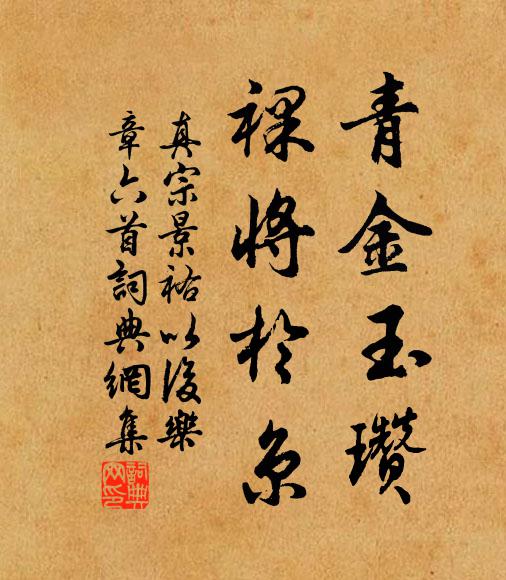 青金玉瓚
祼將於京
真宗景祐以後樂
章六首詞典網集